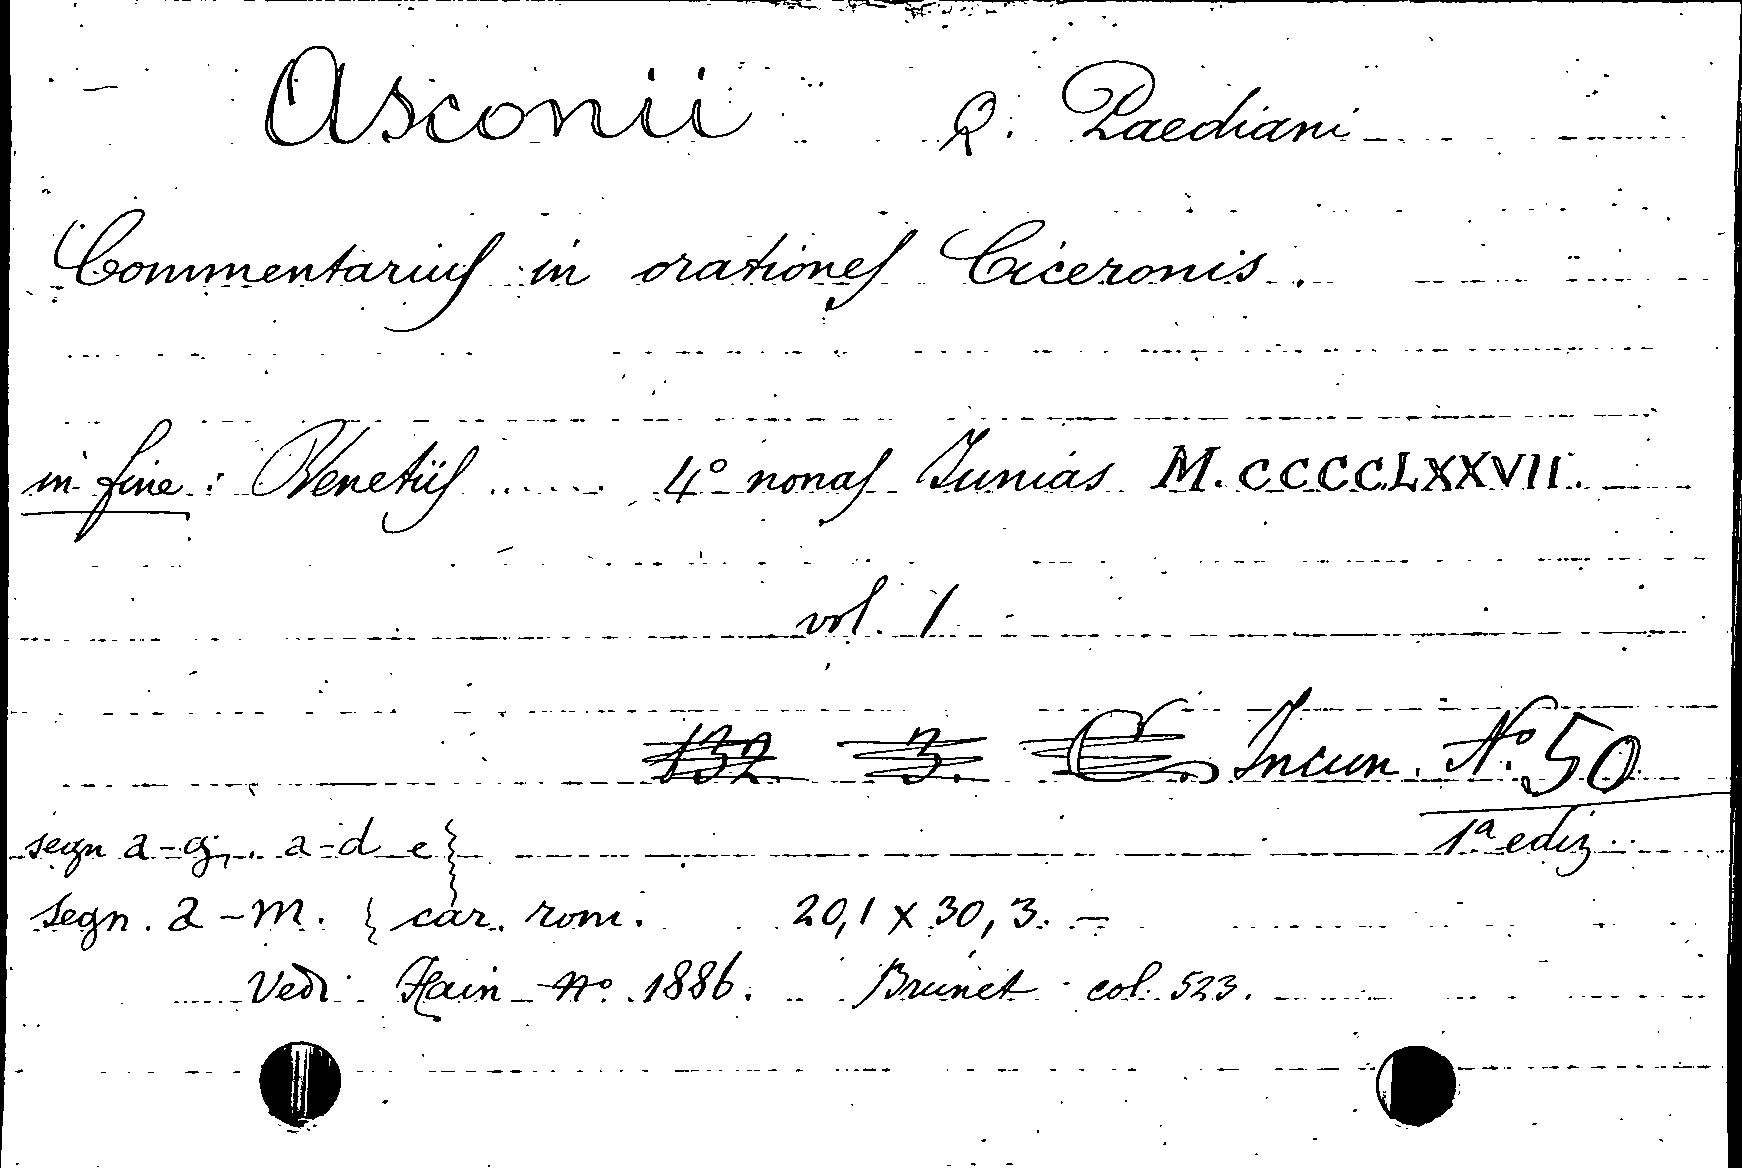 Asconii Q. Paediani
Commentarius in orationes Ciceronis.
in fine: Venetiis ...... 4º nonas Junias M.CCCCLXXVII.
vol. 1
132 3. C. Incun. Nº 50
1ª ediz.
segn a-g, . a-d e
segn. a-m. car. rom. 20,1 x 30,3. –
Vedi Hain Nº 1886. Brunet col. 523.